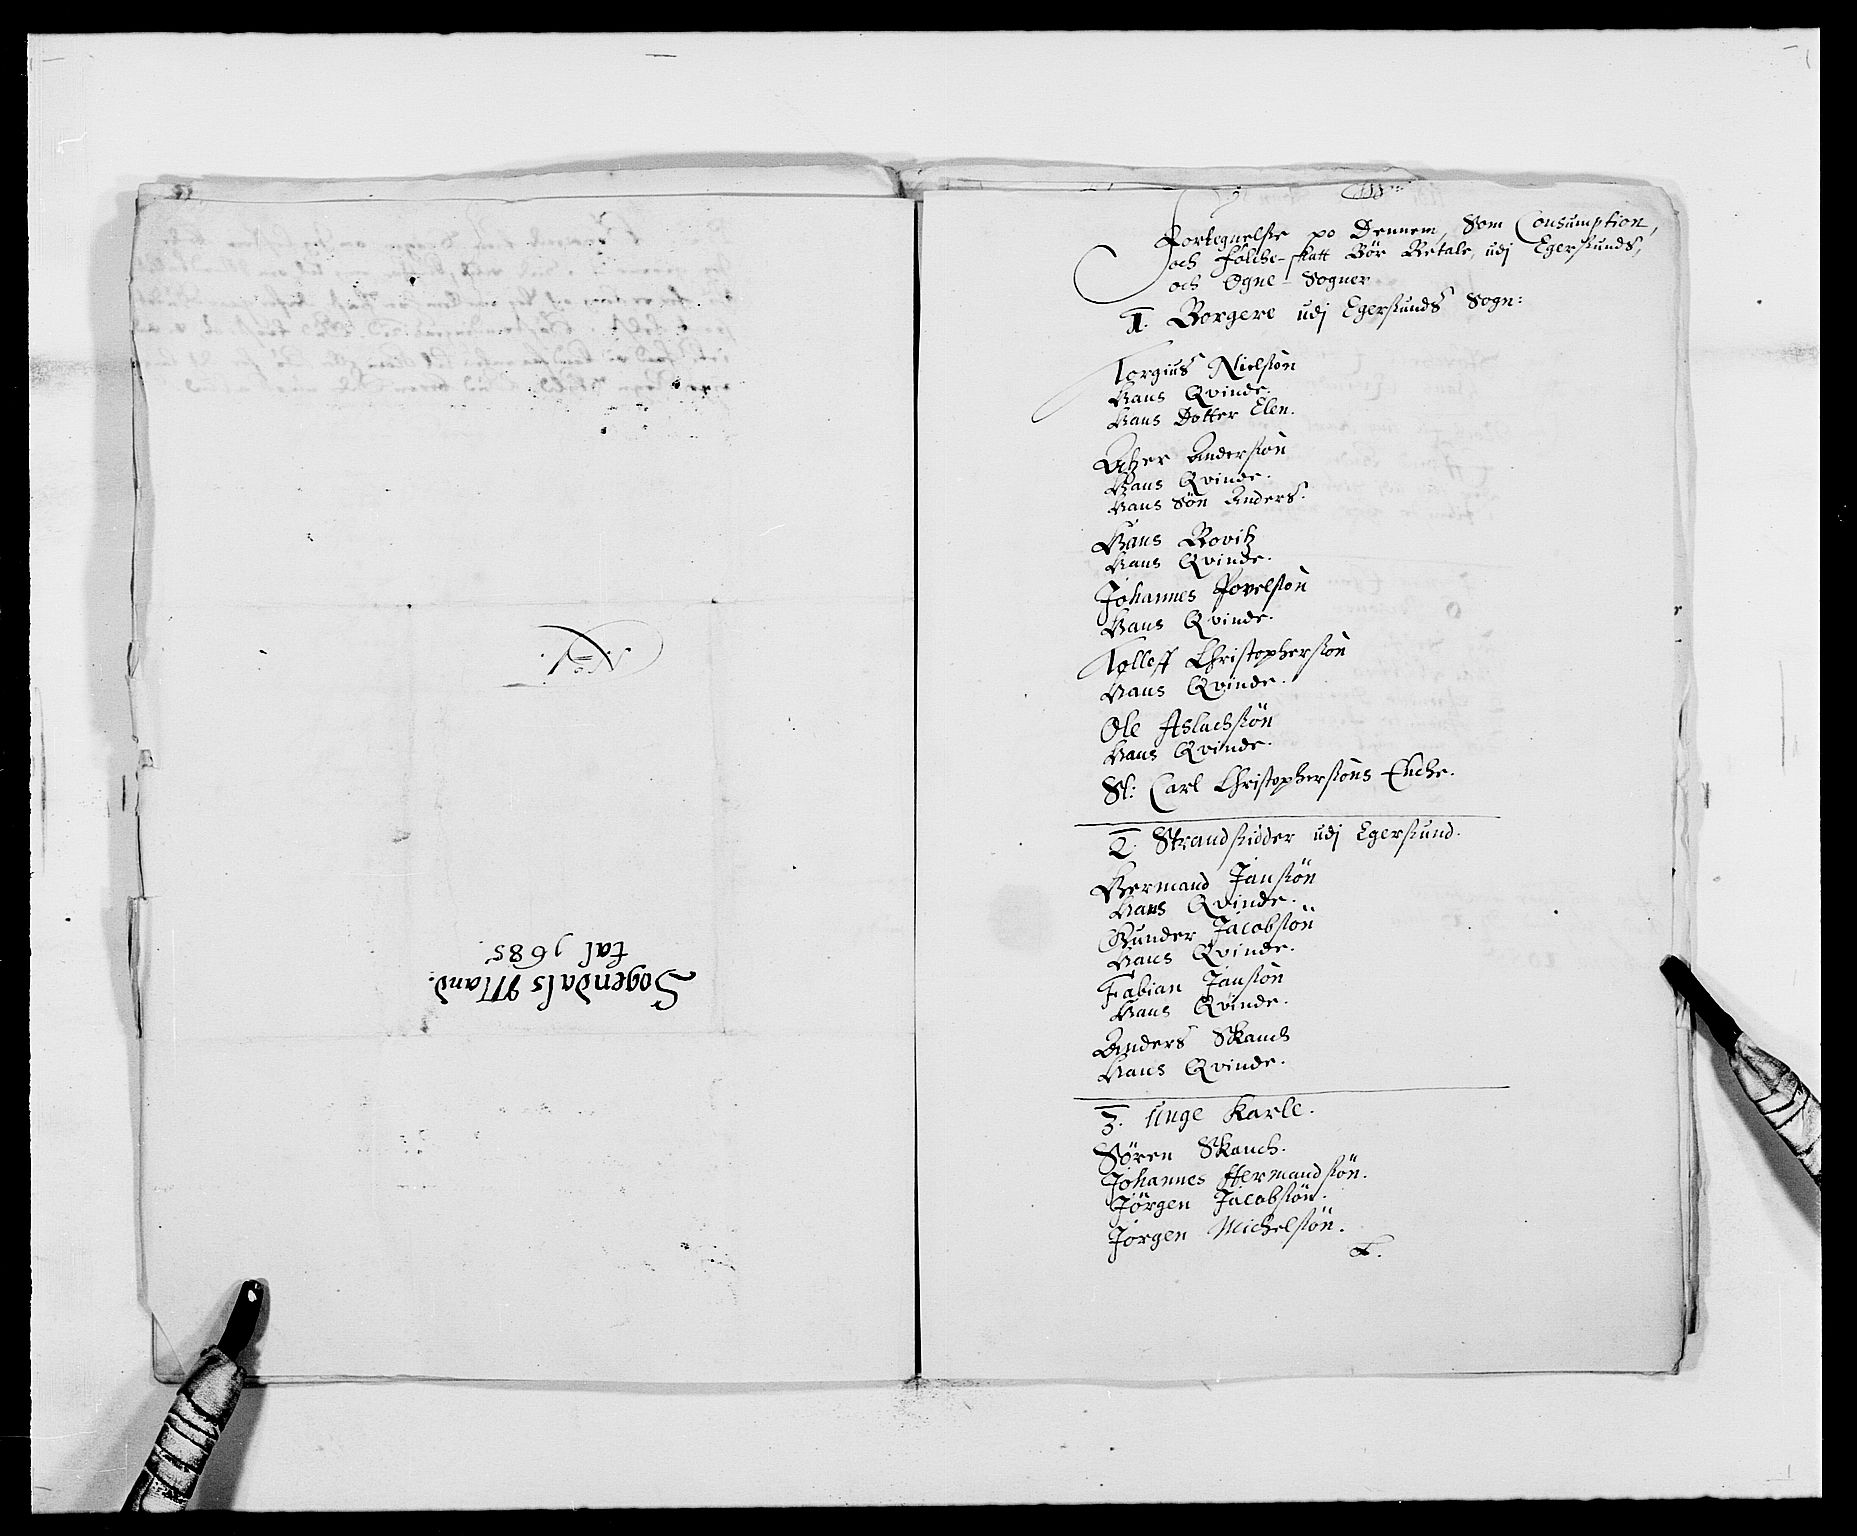 N: 1.
Sogendals Mand:
tal 1685
Fortegnelse po Dennem, Som Consumption,
och folche-skatt Bör Betale, udj Egersunds,
och Ogne-Sogner
1. Borgere udj Egersunds Sogn:
Torgius Nielsön
Hans Qvinde.
Hans Dotter Elen.
Atzer Andersön
Hans Qvinde.
Hans Sön Anders.
Hans Bovitz
Hans Qvinde.
Johannes Povelsön
Hans Qvinde.
Tolleff Christophersön
Hans Qvinde.
Ole Aslachsön
Hans Qvinde.
Sl: Carl Christophersöns Enche.
2. Strandsidder udj Egersund.
Hermand Jansön
Hans Qvinde.
Gunder Jacobsön
Hans Qvinde.
Fabian Jansön
Hans Qvinde.
Anders Skanch
Hans Qvinde.
3. Unge Karle.
Sören Skanch.
Johannes Hermandsön.
Jörgen Jacobsön.
Jörgen Michelsön.